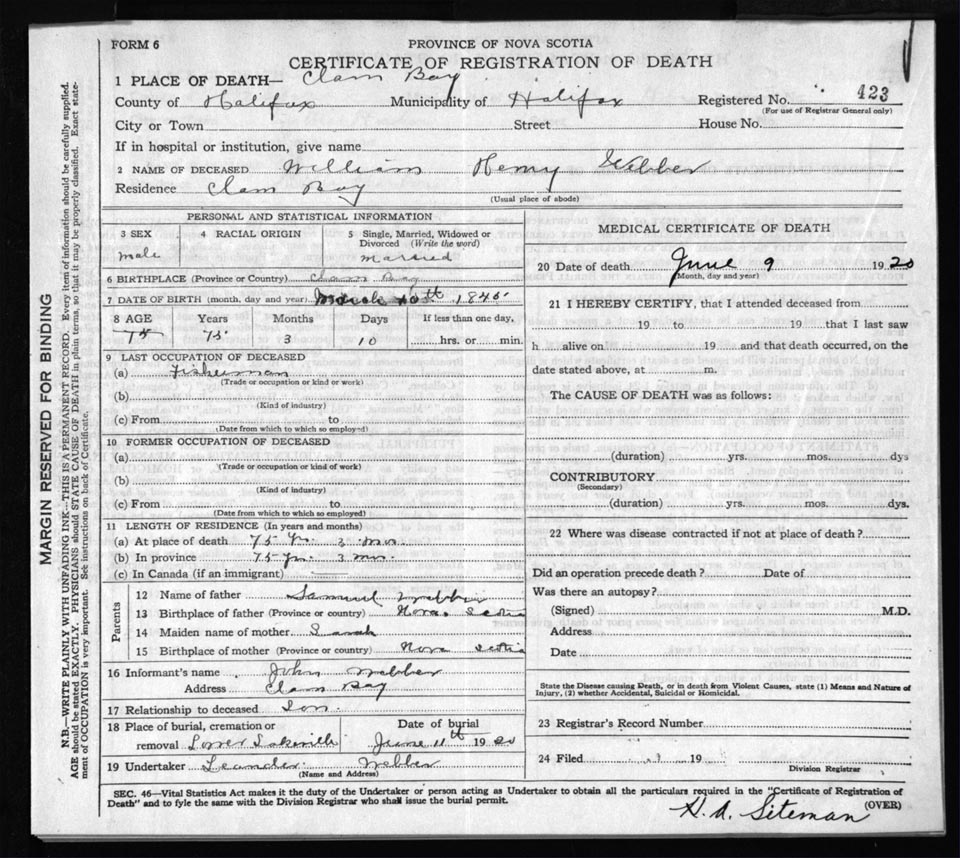 FORM 6
PROVINCE OF NOVA SCOTIA
CERTIFICATE OF REGISTRATION OF DEATH
1 PLACE OF DEATH— Clam Bay
County of Halifax Municipality of Halifax Registered No. 423
(For use of Registrar General only)
City or Town Street House No.
If in hospital or institution, give name
2 NAME OF DECEASED William Henry Webber
Residence Clam Bay
(Usual place of abode)
PERSONAL AND STATISTICAL INFORMATION
3 SEX 4 RACIAL ORIGIN 5 Single, Married, Widowed or
Divorced (Write the word)
male married
6 BIRTHPLACE (Province or Country) Clam Bay
7 DATE OF BIRTH (month, day and year) March 1845
8 AGE Years Months Days If less than one day,
75 75 3 10 hrs. or min.
9 LAST OCCUPATION OF DECEASED
(a) Fisherman
(Trade or occupation or kind or work)
(b)
(Kind of industry)
(c) From to
(Date from which to which so employed)
10 FORMER OCCUPATION OF DECEASED
(a)
(Trade or occupation or kind of work)
(b)
(Kind of industry)
(c) From to
(Date from which to which so employed)
11 LENGTH OF RESIDENCE (In years and months)
(a) At place of death 75 yr. 3 mos.
(b) In province 75 yr. 3 mos.
(c) In Canada (if an immigrant)
Parents
12 Name of father Samuel Webber
13 Birthplace of father (Province or country) Nova Scotia
14 Maiden name of mother Sarah
15 Birthplace of mother (Province or country) Nova Scotia
16 Informant's name John Webber
Address Clam Bay
17 Relationship to deceased Son.
18 Place of burial, cremation or Date of burial
removal Lower June 11th 1920
19 Undertaker Leander Webber
(Name and Address)
MEDICAL CERTIFICATE OF DEATH
20 Date of death June 9 1920
(Month, day and year)
21 I HEREBY CERTIFY, that I attended deceased from
19 to 19 that I last saw
h alive on 19 and that death occurred, on the
date stated above, at m.
The CAUSE OF DEATH was as follows:
(duration) yrs. mos. dys
CONTRIBUTORY
(Secondary)
(duration) yrs. mos. dys.
22 Where was disease contracted if not at place of death?
Did an operation precede death? Date of
Was there an autopsy?
(Signed) M.D.
Address
Date
State the Disease causing Death, or in death from Violent Causes, state (1) Means and Nature of
Injury, (2) whether Accidental, Suicidal or Homicidal.
23 Registrar's Record Number
24 Filed 19
Division Registrar
SEC. 46—Vital Statistics Act makes it the duty of the Undertaker or person acting as Undertaker to obtain all the particulars required in the "Certificate of Registration of
Death" and to fyle the same with the Division Registrar who shall issue the burial permit.
(OVER)
H. A. Siteman
MARGIN RESERVED FOR BINDING
N.B.—WRITE PLAINLY WITH UNFADING INK—THIS IS A PERMANENT RECORD. Every item of information should be carefully supplied.
AGE should be stated EXACTLY. PHYSICIANS should STATE CAUSE OF DEATH in plain terms, so that it may be properly classified. Exact state-
ment of OCCUPATION is very important. See instructions on back of Certificate.